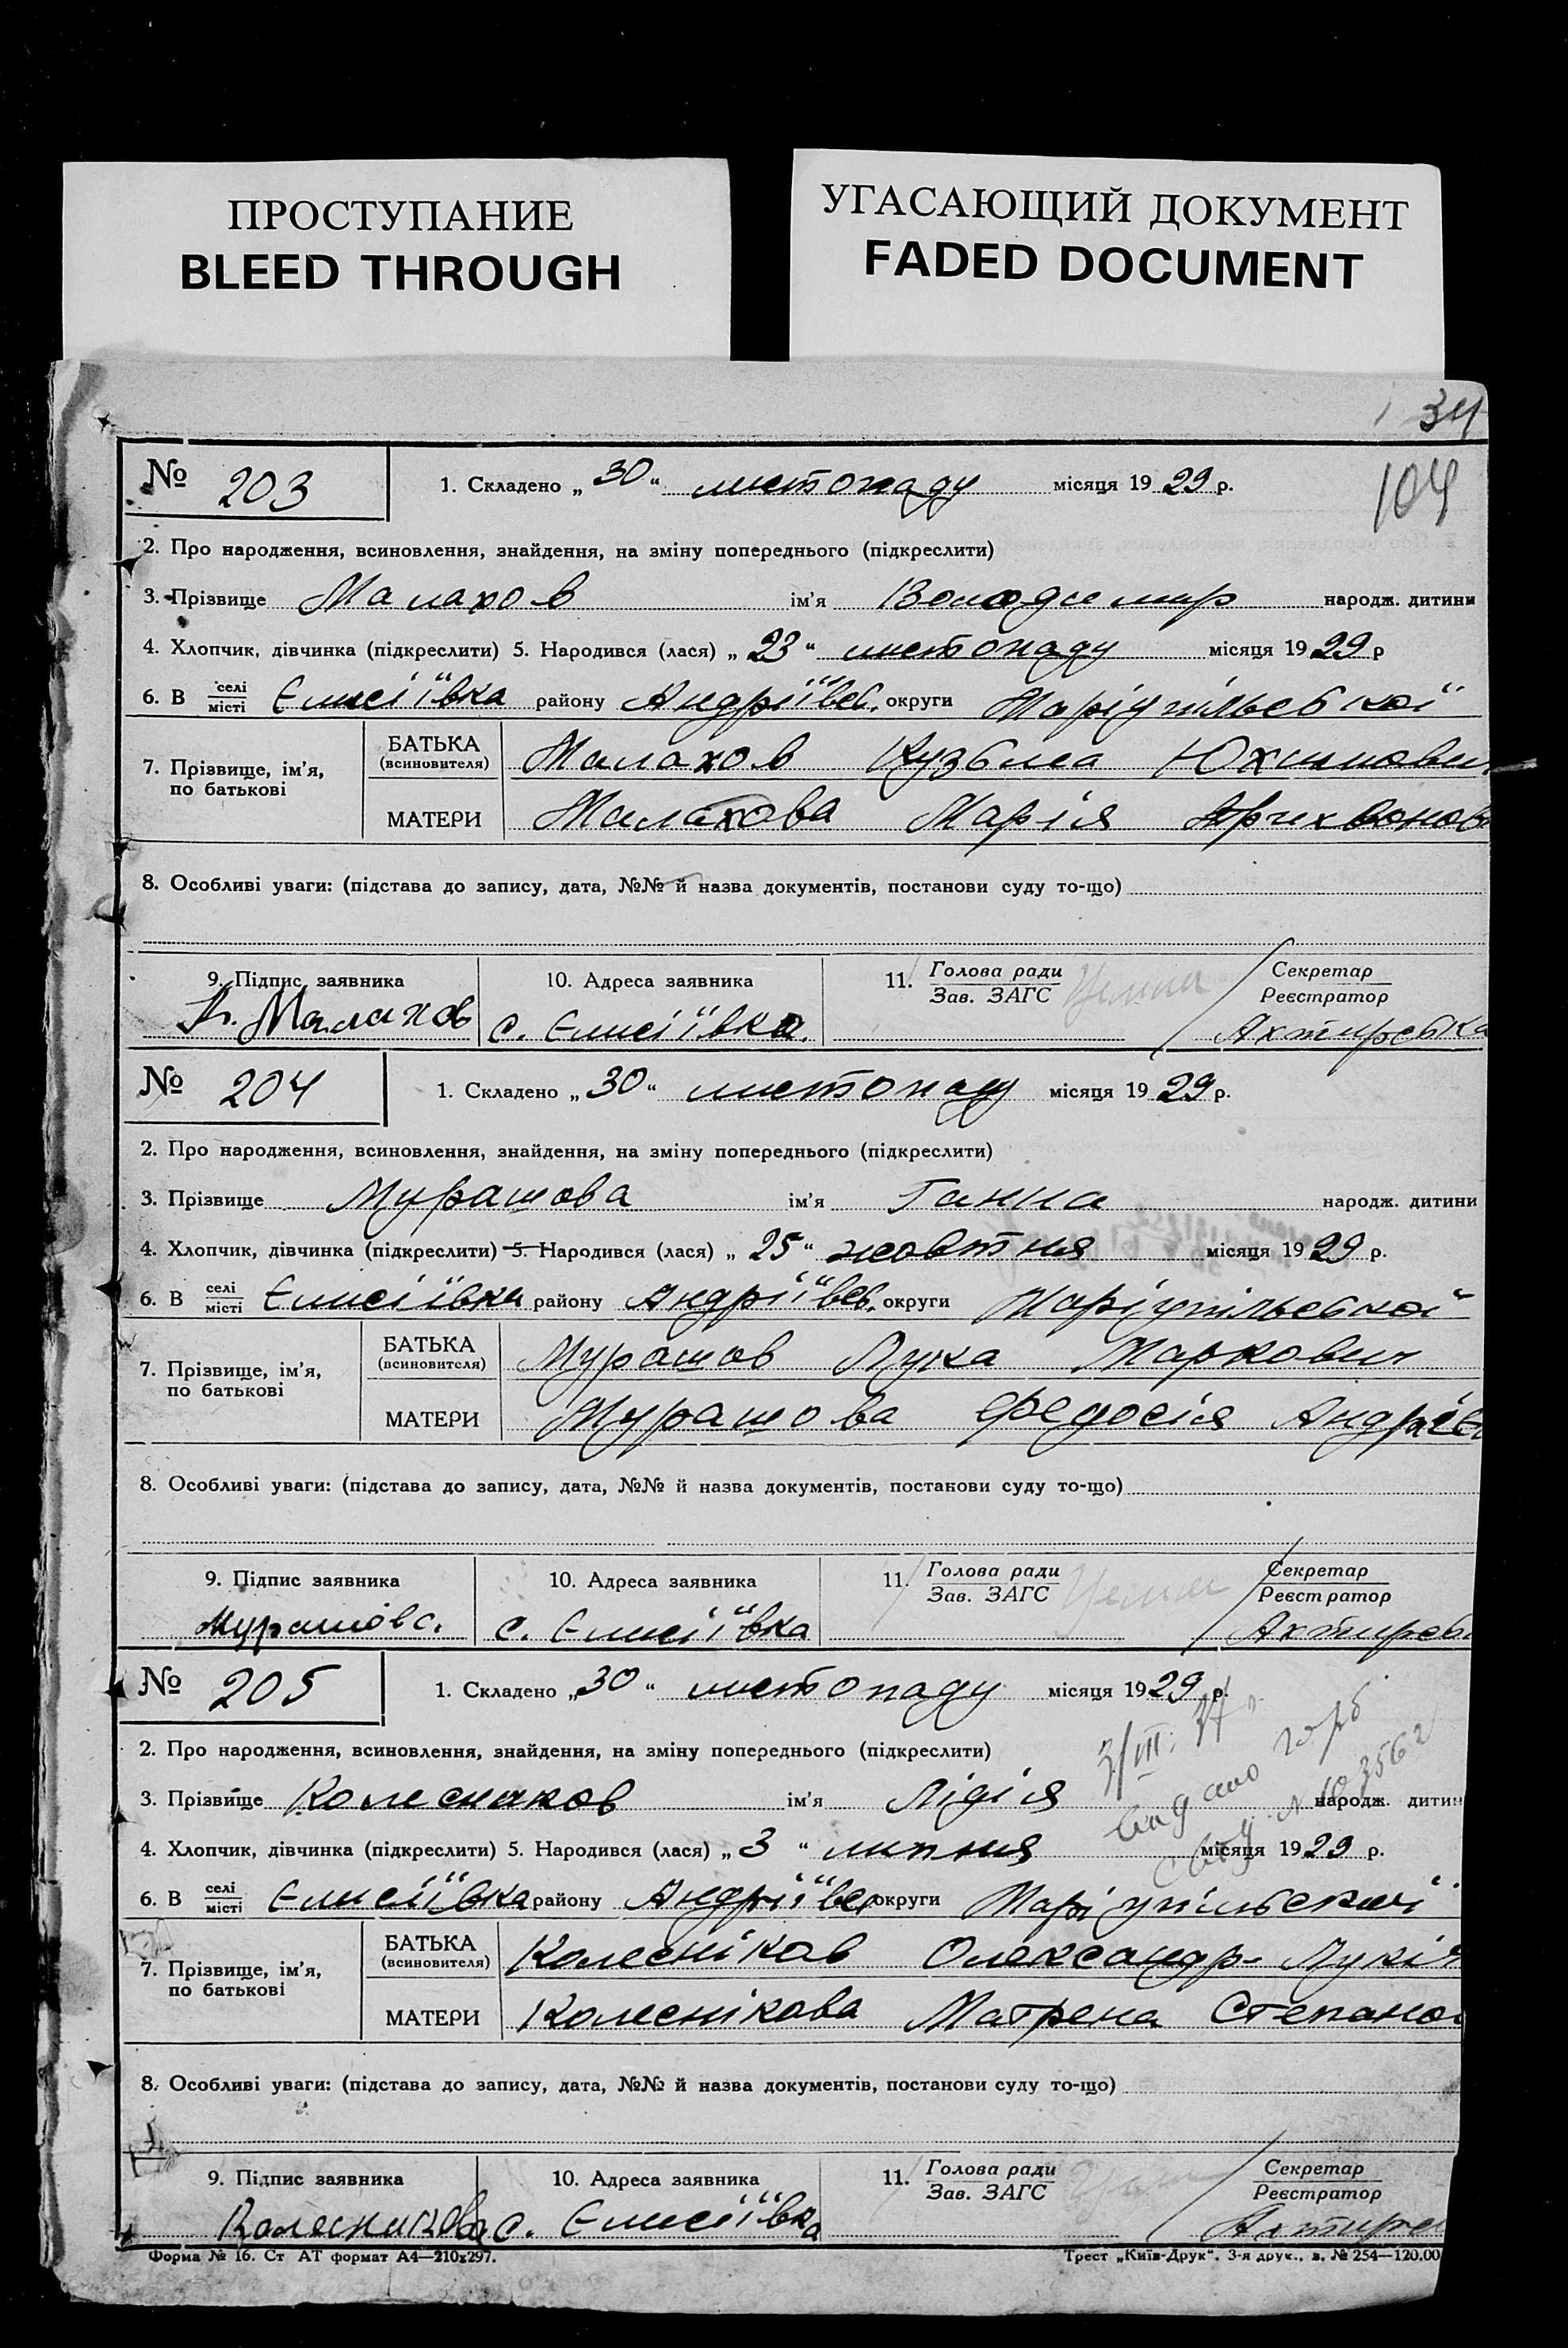 ПРОСТУПАНИЕ
BLEED THROUGH
УГАСАЮЩИЙ ДОКУМЕНТ
FADED DOCUMENT
34
104
№ 203 1. Складено „30“ листопаду місяця 1929 р.
2. Про народження, всиновлення, знайдення, на зміну попереднього (підкреслити)
3. Прізвище Малахов ім'я Володимир народж. дитини
4. Хлопчик, дівчинка (підкреслити) 5. Народився (лася) „23“ листопаду місяця 1929 р
6. В селі місті Єлисіївка району Андріївсь. округи Маріупільської
7. Прізвище, ім'я, по батькові
БАТЬКА (всиновителя) Малахов Кузьма Юхимович
МАТЕРИ Малахова Марія
8. Особливі уваги: (підстава до запису, дата, №№ й назва документів, постанови суду то-що)
9. Підпис заявника 10. Адреса заявника 11. Голова ради Зав. ЗАГС Секретар Реєстратор
К. Малахов с. Єлисіївка. Ахтирська
№ 204 1. Складено „30“ листопаду місяця 1929 р.
2. Про народження, всиновлення, знайдення, на зміну попереднього (підкреслити)
3. Прізвище Мурашова ім'я Ганна народж. дитини
4. Хлопчик, дівчинка (підкреслити) 5. Народився (лася) „25“ жовтня місяця 1929 р.
6. В селі місті Єлисіївка району Андріївсь. округи Маріупільської
7. Прізвище, ім'я, по батькові
БАТЬКА (всиновителя) Мурашов Лука Маркович
МАТЕРИ Мурашова Федосія Андріє
8. Особливі уваги: (підстава до запису, дата, №№ й назва документів, постанови суду то-що)
9. Підпис заявника 10. Адреса заявника 11. Голова ради Зав. ЗАГС Секретар Реєстратор
Мурашова. с. Єлисіївка Ахтирсь
№ 205 1. Складено „30“ листопаду місяця 1929 р.
2. Про народження, всиновлення, знайдення, на зміну попереднього (підкреслити)
3/III. 37
3. Прізвище Колесников ім'я Лідія народж. дити
4. Хлопчик, дівчинка (підкреслити) 5. Народився (лася) „3“ липня місяця 1929 р.
6. В селі місті Єлисіївка району Андріївсь округи Маріупільської
7. Прізвище, ім'я, по батькові
БАТЬКА (всиновителя) Колесніков Олександр Лукіч
МАТЕРИ Колеснікова Матрена Степано
8. Особливі уваги: (підстава до запису, дата, №№ й назва документів, постанови суду то-що)
9. Підпис заявника 10. Адреса заявника 11. Голова ради Зав. ЗАГС Секретар Реєстратор
Колесникова с. Єлисіївка Ахтирсь
Форма № 16. Ст АТ формат А4—210х297. Трест „Київ-Друк“. 3-я друк., з. № 254—120.00